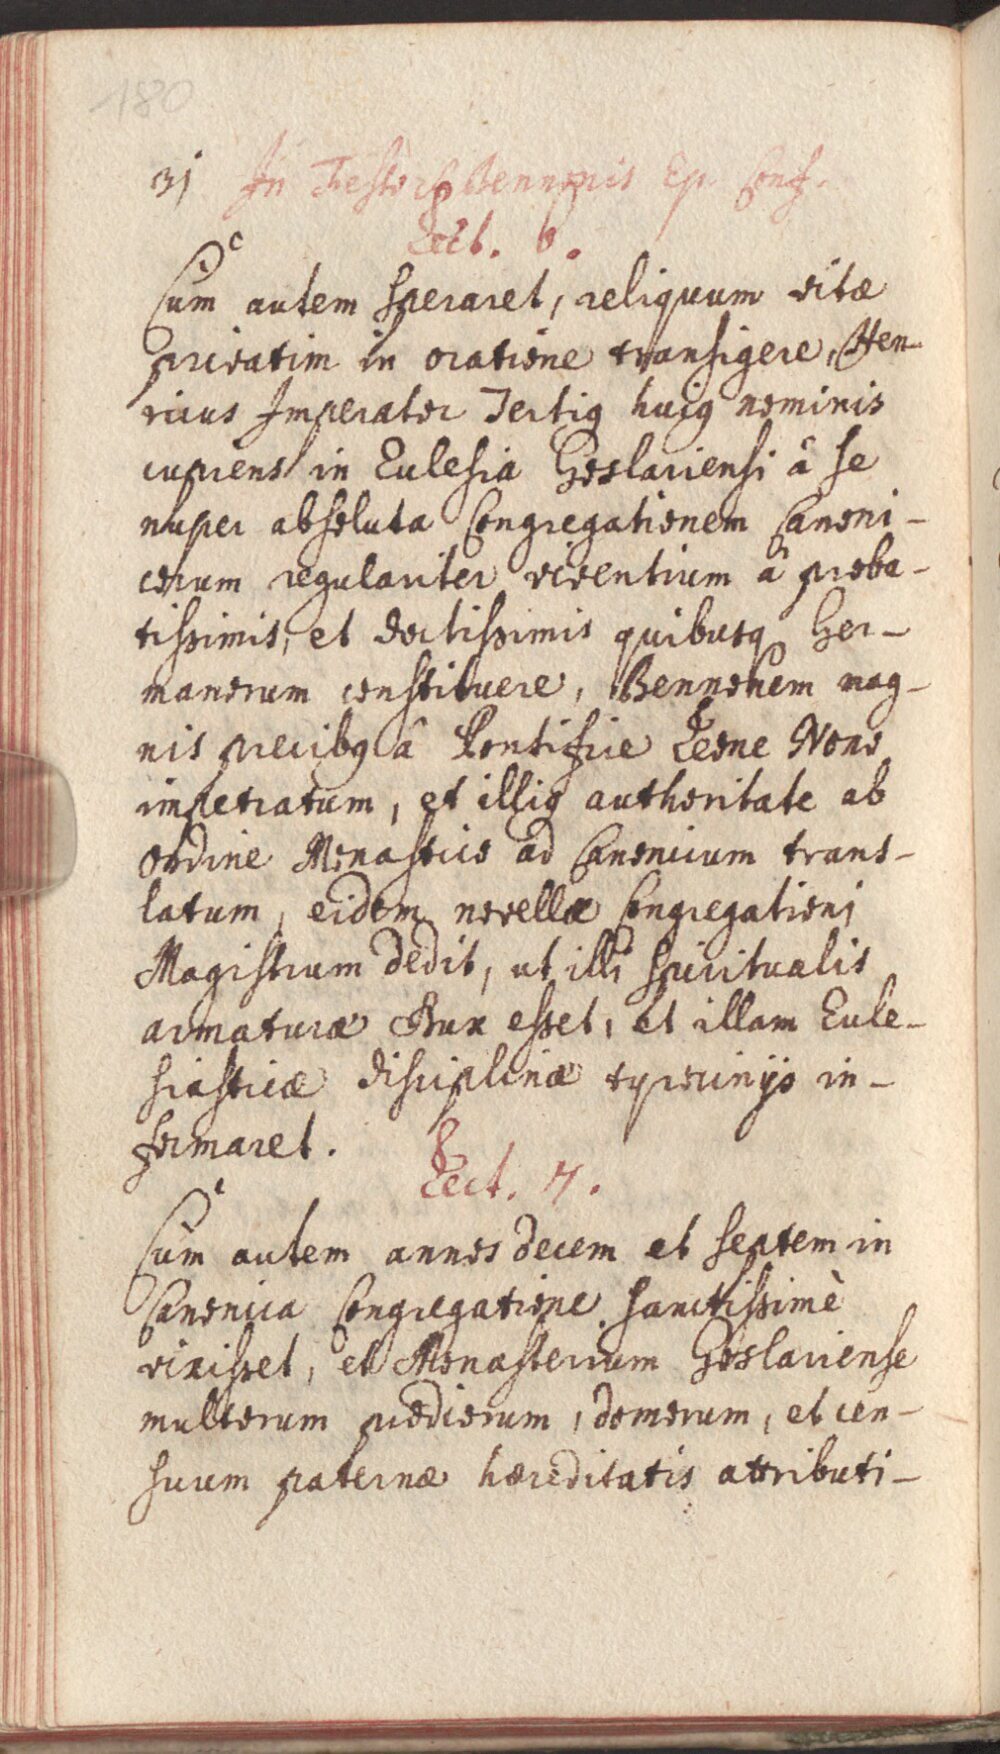 180
31 In Festo S. Bennonis Ep. Conf.
Lect. 6.
Cum autem speraret, reliquum vitæ
privatim in oratione transigere, Hen-
ricus Imperator Tertiq huiq nominis
cupiens in Ecclesia Goslariensi â se
nuper absoluta Congregationem Canoni-
corum regulariter viventium â proba-
tissimis, et doctissimis quibusq Ger-
manorum constituere, Bennonem mag-
nis precibq â Pontifice Leone Nono
impetratum, et illiq authoritate ab
Ordine Monastico ad Canonicum trans-
latum, eidem novellæ Congregationi
Magistrum dedit, ut illi spiritualis
armaturæ Dux esset, et illam Eccle-
siasticæ disciplinæ tyrocinijs in-
formaret.
Lect. 7.
Cum autem annos decem et septem in
Canonica Congregatione sanctissimè
vixisset, et Monasterium Goslariense
multorum prædiorum, domorum, et cen-
suum paternæ hæreditatis attributi-